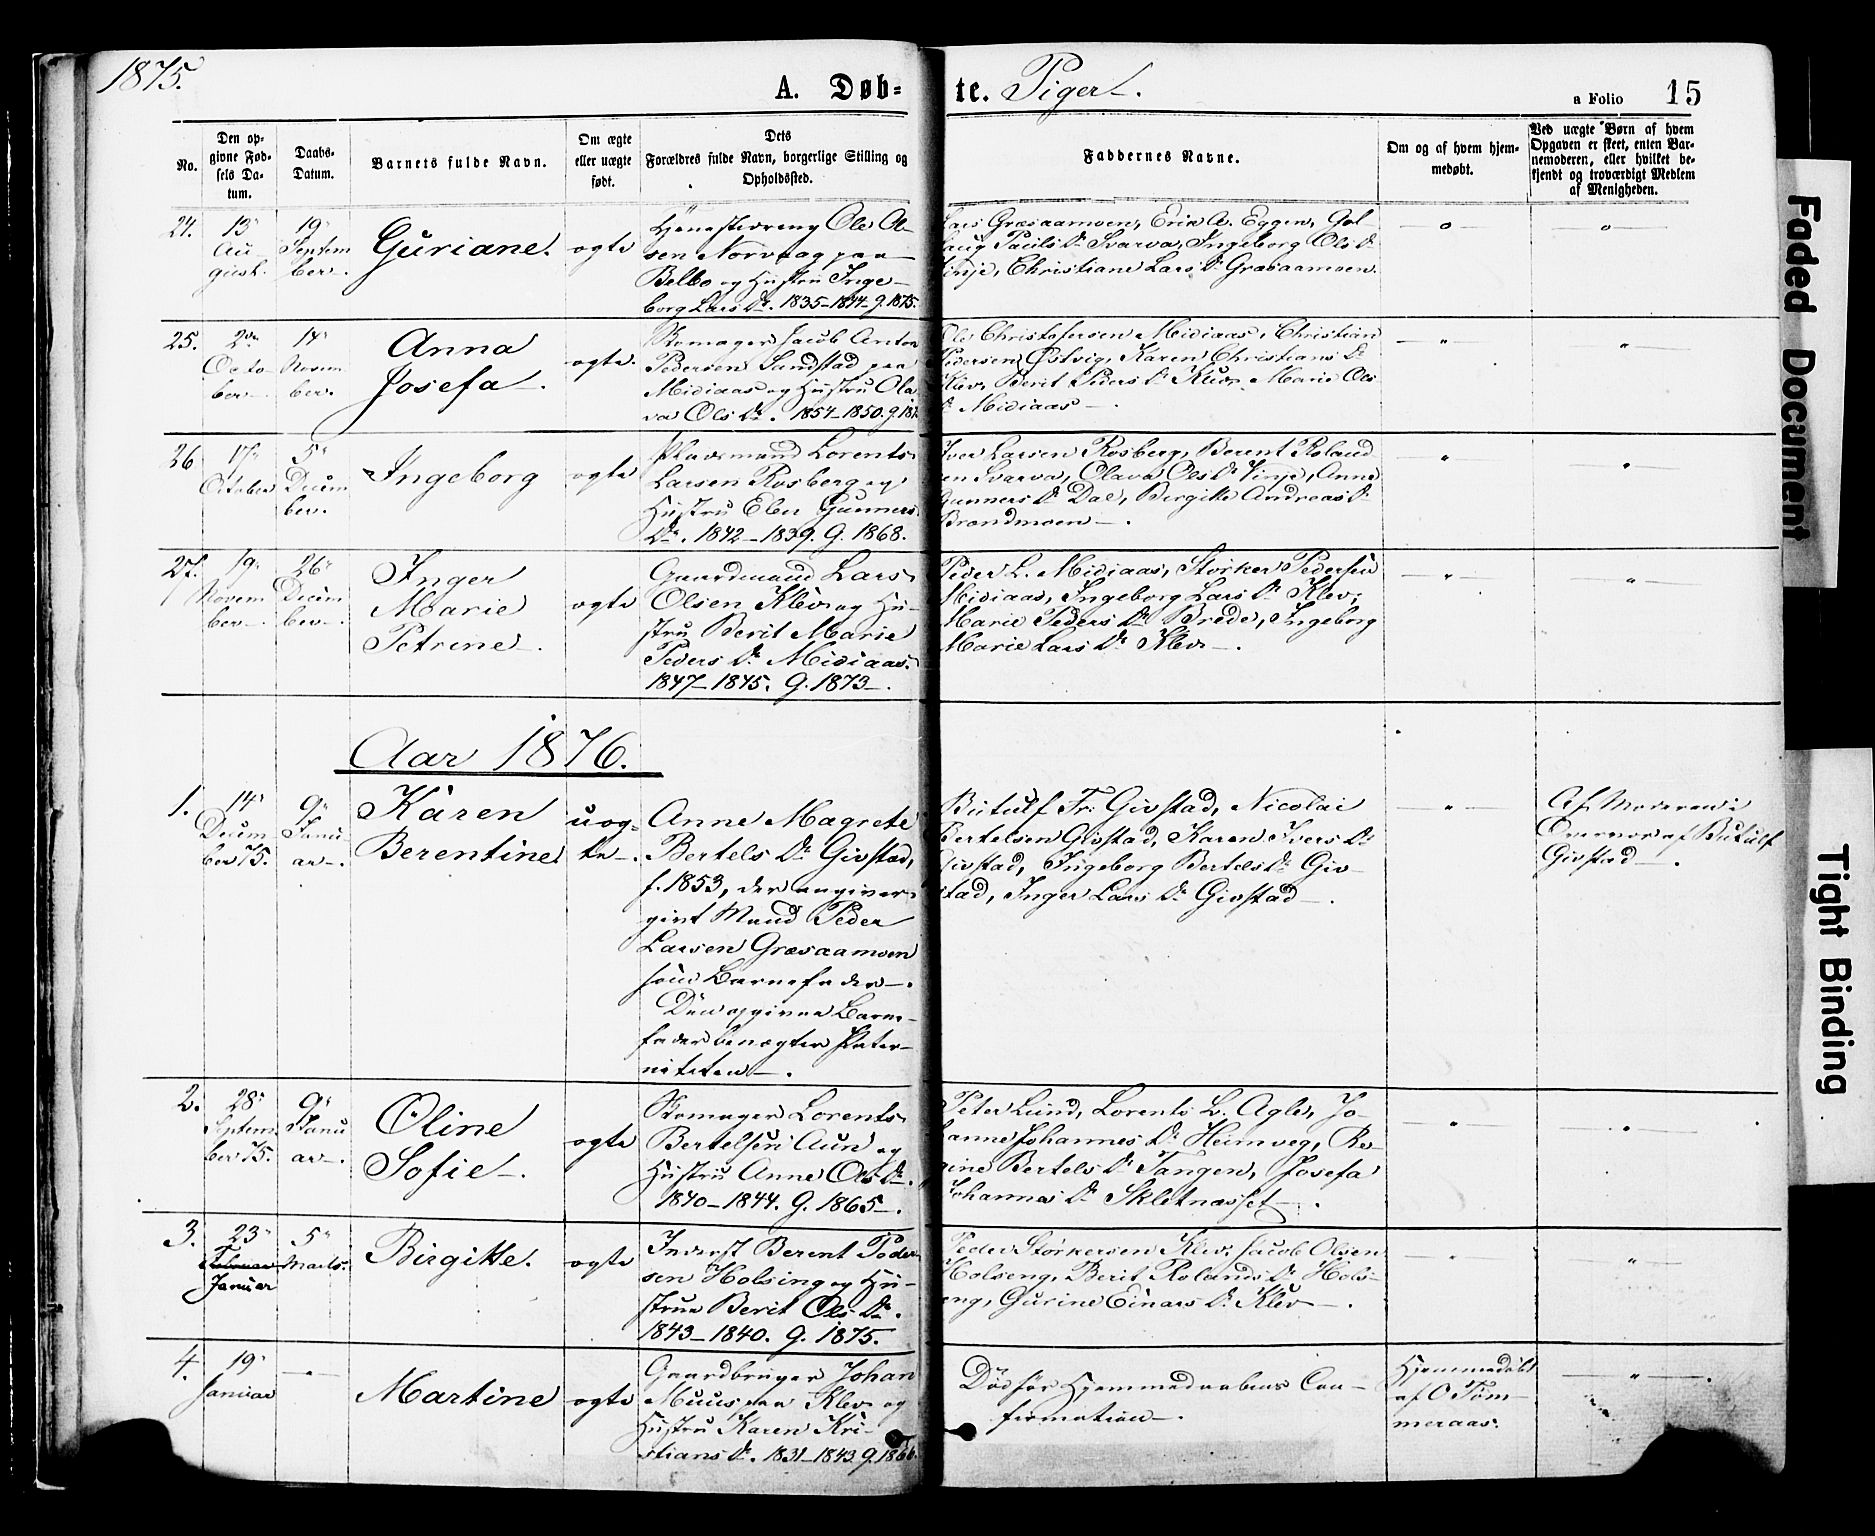 1875.
A. Døb-
te. Piger.
a Folio 15
No.
Den op-
givne Fød-
sels Da-
tum.
Daabs-
Datum.
Barnets fulde Navn.
Om ægte
eller uægte
født.
Dets
Forældres fulde Navn, borgerlige Stilling og
Opholdssted.
Faddernes Navne.
Om og af hvem hjem-
medøbt.
Ved uægte Børn af hvem
Opgaven er skeet, enten Bar-
nemoderen, eller hvilket be-
kjendt og troværdigt Medlem
af Menigheden.
24.
13
Au
gust.
19
Septem
ber.
Guriane.
ægte
Ole Ol-
sen
Belbo og Hustru Inge-
borg Lars Dr. 1835-1844. g. 1875.
Lars Græsaamoen, Erik A. Eggen, Gol
laug Pauls Dr Svarva, Ingeborg Ols Dr
Vinje, Christiane Lars Dr Græsaamoen.
25.
2den
Octo
ber
14
Novem
ber.
Anna
Josefa.
ægte.
Skomager Jacob Anton
Pedersen Sundstad paa
Midiaas og Hustru Ola
va Ols Dr. 1854-1850. g. 187
Ole Christofersen Midiaas, Christian
Pedersen Østvig, Karen Christians Dr
Klev, Berit Peders Dr Klev, Marie Ols
Dr Midiaas.
26
17
October
5
Decem
ber.
Ingeborg
ægte
Pladsmand Lorents
Larsen Rosberg og
Hustru Elen Gunners
Dr. 1842-1839. g. 1868.
Iver Larsen Rosberg, Berent Roland
sen Svarva, Olava Ols Dr Vinje, Anne
Gunners Dr Dal, Birgitte Andreas Dr
Brandmoen.
27.
19
Novem
ber.
26
Decem
ber.
Inger
Marie
Petrine.
ægte
Gaardmand Lars
Olsen Klev og Hu-
stru Berit Marie
Peders Dr Midiaas.
1847-1845. g. 1873.
Peder L. Midiaas, Størker Pedersen
Midiaas, Ingeborg Lars Dr Klev,
Marie Peders Dr Brede, Ingeborg
Marie Lars Dr Klev.
Aar 1876.
1.
14
Decem
ber 75.
9
Janu
ar.
Karen
Berentine
uæg-
te.
Anne Magrete
Bertels Dr Givstad,
f. 1853, der angiver
givt Mand Peder
Larsen Græsaamoen
som Barnefader.
Den opgivne Barne-
fader benægter Pater-
niteten.
Butulf Fr. Givstad, Nicolai
Bertelsen Givstad, Karen Ivers Dr
Givstad, Ingeborg Bertels Dr Giv-
stad, Inger Lars Dr Givstad.
Af Moderen
af Butulf
Givstad.
2.
28
Septem
ber 75.
9
Janu
ar.
Oline
Sofie.
ægte
Skomager Lorents
Bertelsen Aun og
Hustru Anne Ols Dr.
1840-1844. g. 1865.
Peter Lund, Lorents L. Agle, Jo-
hanne Johannes Dr Heimveg, Re-
gine Bertels Dr Tangen, Josefa
Johannes Dr Skletnæsset.
3.
23
Februar
Januar
5
Marts.
Birgitte.
ægte
Inderst Berent Peder
sen Holseng og Hu-
strue Berit Ols Dr.
1843-1840. g. 1875.
Peder Størkersen Klev, Jacob Olsen
Holseng, Berit Rolands Dr Hols-
eng, Gurine Einars Dr Klev.
4.
19
Januar
Martine
ægte
Gaardbruger Johan
Muus paa Klev og
Hustru Karen Kri-
stians Dr. 1831-1843. g. 1866.
Død før Hjemmedaabens Con-
firmation.
Hjemmedøbt
af O Tøm-
meraas.
Faded Document
Tight Binding